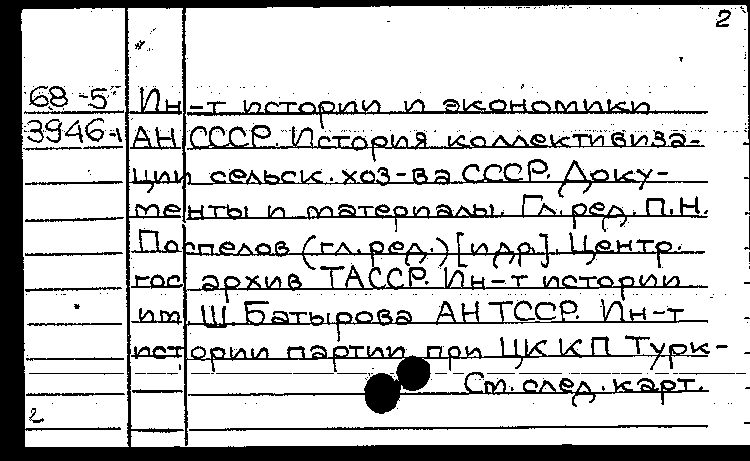 2
68-5 Ин-т истории и экономики
3946-1 АН СССР. История коллективиза-
ции сельск. хоз-ва СССР. Доку-
менты и материалы. Гл. ред. П.Н.
Поспелов (гл. ред.) [и др.]. Центр.
гос архив ТАССР. Ин-т истории
им Ш. Батырова АН ТССР. Ин-т
истории партии при ЦК КП Турк-
См. след. карт.
2